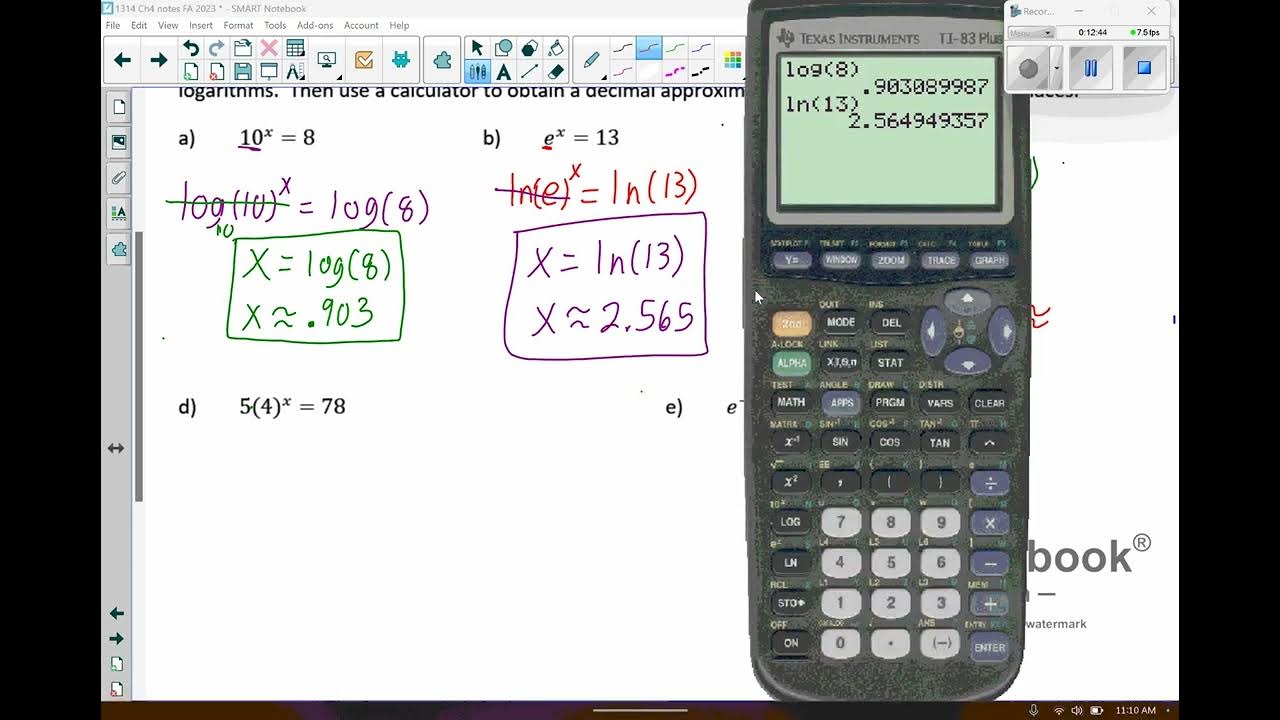 1314 Ch4 notes FA 2023 * - SMART Notebook
File Edit View Insert Format Tools Add-ons Account Help
Recor...
Menu 0:12:44 7.5 fps
logarithms. Then use a calculator to obtain a decimal approxim
a) 10ˣ = 8
b) eˣ = 13
log(10)ˣ = log(8)
10
x = log(8)
x ≈ .903
ln(e)ˣ = ln(13)
x = ln(13)
x ≈ 2.565
)
≈
d) 5(4)ˣ = 78
e) e
TEXAS INSTRUMENTS TI-83 Plus
log(8)
.903089987
ln(13)
2.564949357
STATPLOT F1 TBLSET F2 FORMAT F3 CALC F4 TABLE F5
Y= WINDOW ZOOM TRACE GRAPH
QUIT INS
2nd MODE DEL
A-LOCK LINK LIST
ALPHA X,T,θ,n STAT
TEST A ANGLE B DRAW C DISTR
MATH APPS PRGM VARS CLEAR
MATRX D SIN⁻¹ E COS⁻¹ F TAN⁻¹ G π H
x⁻¹ SIN COS TAN ^
√ EE { } e
x² , ( ) ÷
10ˣ
LOG 7 8 9 ×
eˣ L4 L5 L6
LN 4 5 6 −
RCL L1 L2 L3 MEM
STO➔ 1 2 3 +
OFF CATALOG ANS ENTRY SOLVE
ON 0 . (−) ENTER
book®
watermark
11:10 AM